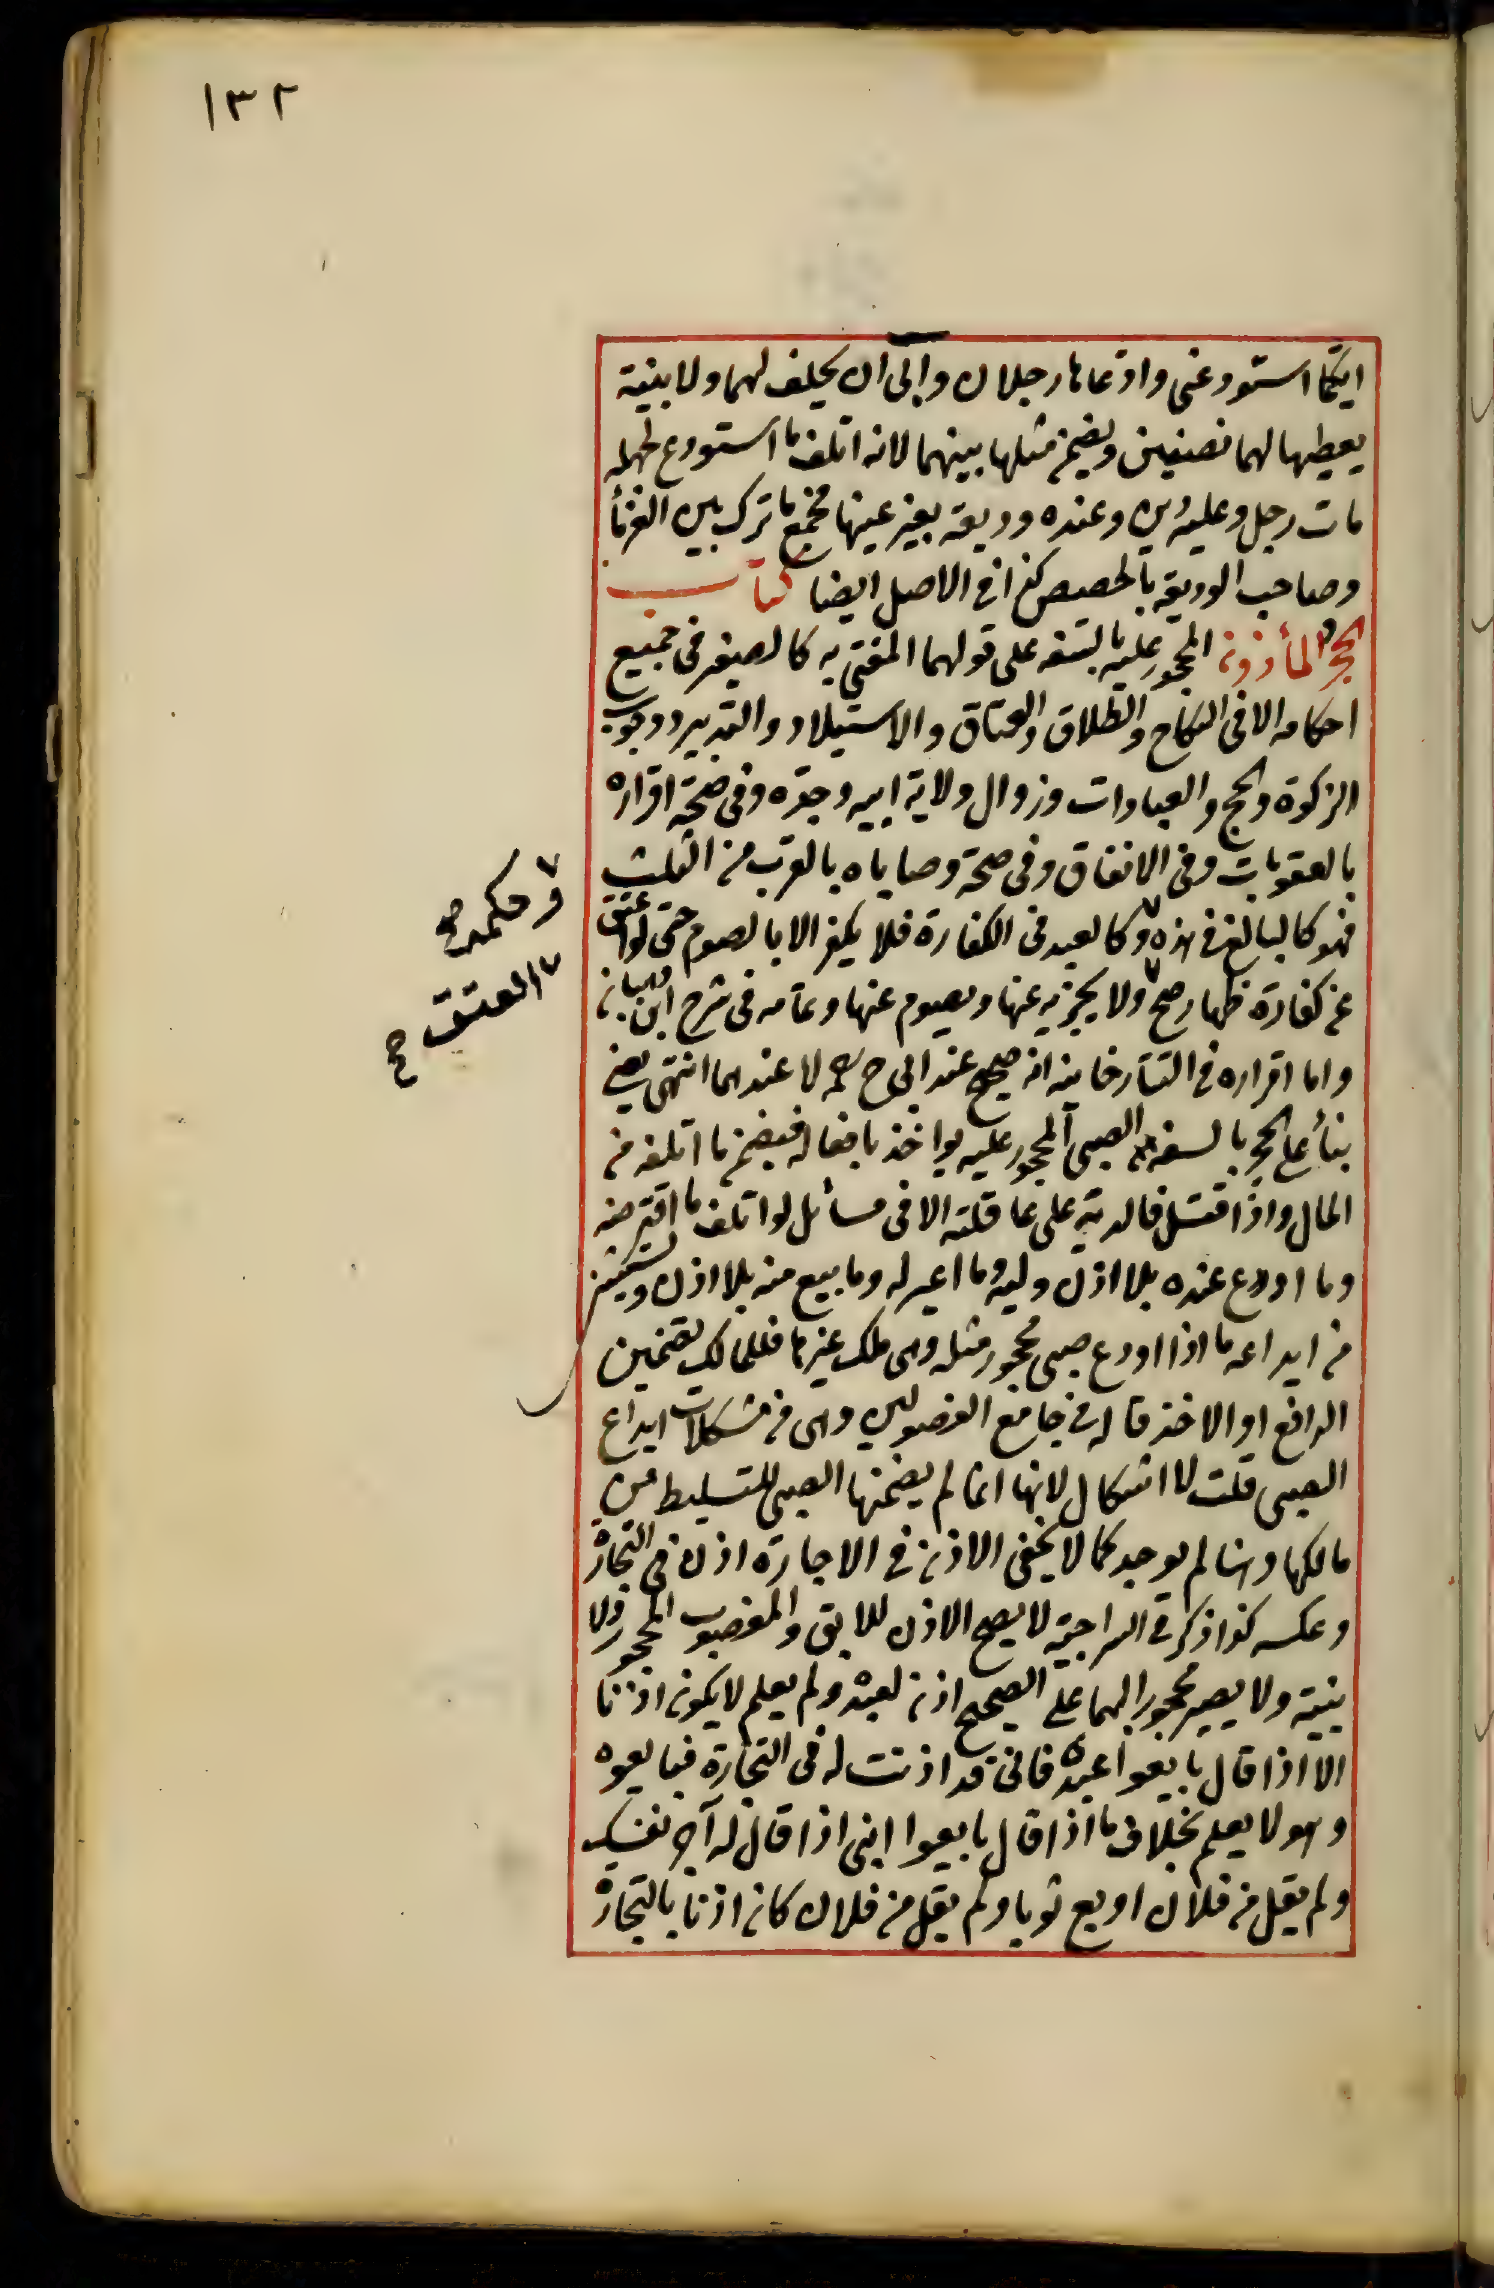 ١٣٢
ايكما استودعني وادعاها رجلان وابى ان يحلف لهما ولا بينة
يعطيها لهما نصفين ويضمن مثلها بينهما لانه اتلف ما استودع لجهله
مات رجل وعليه دين وعنده وديعة بغير عينها فجميع ما ترك بين الغرمأ
وصاحب الوديعة بالحصص كذا في الاصل ايضا كتاب
الحجر والمأذون المحجور عليه بالسفه على قولهما المفتى به كالصغير في جميع
احكامه الا في النكاح والطلاق والعتاق والاستيلاد والتدبير ووجوب
الزكوة والحج والعبادات وزوال ولاية ابيه وجده وفي صحة اقراره
بالعقوبات وفي الانفاق وفي صحة وصاياه بالقرب من الثلث
فهو كالبالغ في هذه ٧ وكالعبد في الكفارة فلا يكفر الا بالصوم حتى لو اعتق
عن كفارة ظهار صح ٧ ولا يجزيه عنها ويصوم عنها وتمامه في شرح ابن وهبان
واما اقراره في التتارخانية انه صحيح عند ابي ح رح لا عندهما انتهى يعني
بنأ على الحجر بالسفه الصبي المحجور عليه يواخذ بافعاله فيضمن ما اتلفه من
المال واذا قتل فالدية على عاقلته الا في مسائل لو اتلف ما اقترضه
وما اودع عنده بلا اذن وليه وما اعير له وما بيع منه بلا اذن ويستثنى
من ايداعه ما اذا اودع صبي محجور مثله وهي ملك غيرها فللمالك تضمين
الدافع او الاخذ قاله في جامع الفصولين وهي من مشكلات ايداع
الصبي قلت لا اشكال لانها انما لم يضمنها الصبي للتسليط من
مالكها وهنا لم يوجد كما لا يخفى الاذن في الاجارة اذن في التجارة
وعكسه كذا ذكر في السراجية لا يصح الاذن للابق والمغصوب المحجور ولا
بينة ولا يصير محجورا بهما على الصحيح اذن لعبده ولم يعلم لا يكون اذنا
الا اذا قال بايعوا عبدي فاني قد اذنت له في التجارة فبايعوه
وهو لا يعلم بخلاف ما اذا قال بايعوا ابني اذا قال له آجر نفسك
ولم يقل من فلان او بع ثوبا ولم يقل من فلان كان اذنا بالتجارة
٧ وحكمه صح
٧ العتق صح